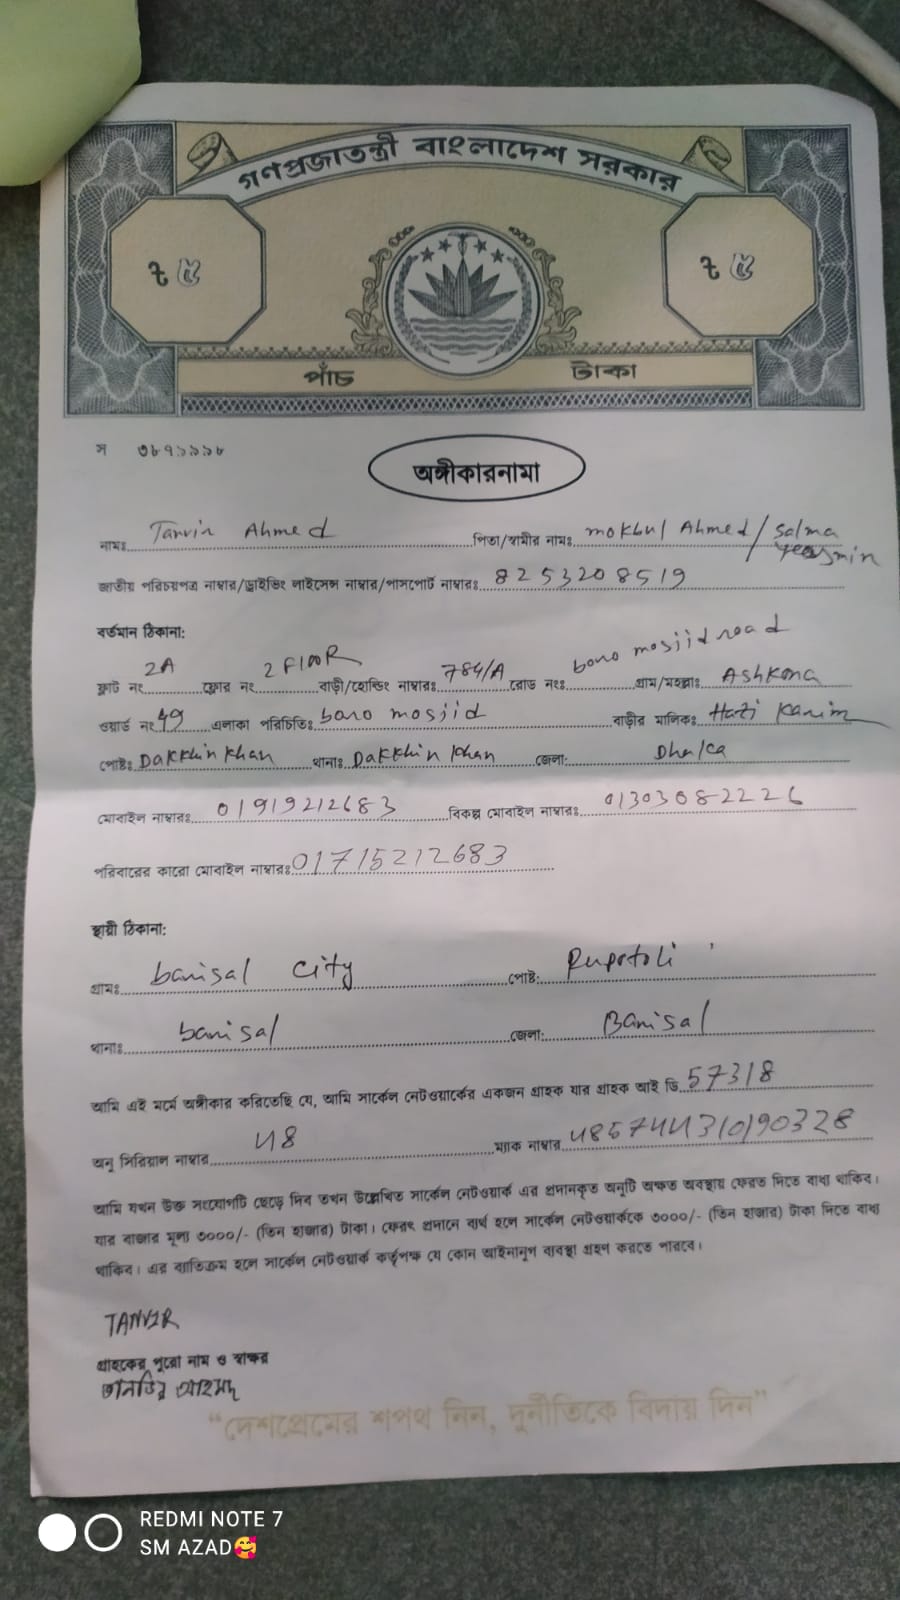 গণপ্রজাতন্ত্রী বাংলাদেশ সরকার
৳ ৫ ৳ ৫
পাঁচ টাকা
স ৩৮৭১৯৯৮
অঙ্গীকারনামা
নামঃ Tanvir Ahmed পিতা/স্বামীর নামঃ mokbul Ahmed/Salma
Yeasmin
জাতীয় পরিচয়পত্র নাম্বার/ড্রাইভিং লাইসেন্স নাম্বার/পাসপোর্ট নাম্বারঃ 8253208519
বর্তমান ঠিকানা:
ফ্লাট নং 2A ফ্লোর নং 2 FlooR বাড়ী/হোল্ডিং নাম্বারঃ 784/A রোড নংঃ bono mosjid road গ্রাম/মহল্লাঃ Ashkona
ওয়ার্ড নংঃ 49 এলাকা পরিচিতিঃ bono mosjid বাড়ীর মালিকঃ Hazi Karim
পোষ্টঃ Dakkhin khan থানাঃ Dakkhin khan জেলা: Dhaka
মোবাইল নাম্বারঃ 01919212683 বিকল্প মোবাইল নাম্বারঃ 01303082226
পরিবারের কারো মোবাইল নাম্বারঃ 01715212683
স্থায়ী ঠিকানা:
গ্রামঃ barisal city পোষ্ট: Rupatoli
থানাঃ barisal জেলা: Barisal
আমি এই মর্মে অঙ্গীকার করিতেছি যে, আমি সার্কেল নেটওয়ার্কের একজন গ্রাহক যার গ্রাহক আই ডি 57318
অনু সিরিয়াল নাম্বার 48 ম্যাক নাম্বার 485744310190328
আমি যখন উক্ত সংযোগটি ছেড়ে দিব তখন উল্লেখিত সার্কেল নেটওয়ার্ক এর প্রদানকৃত অনুটি অক্ষত অবস্থায় ফেরত দিতে বাধ্য থাকিব।
যার বাজার মূল্য ৩০০০/- (তিন হাজার) টাকা। ফেরৎ প্রদানে ব্যর্থ হলে সার্কেল নেটওয়ার্ককে ৩০০০/- (তিন হাজার) টাকা দিতে বাধ্য
থাকিব। এর ব্যতিক্রম হলে সার্কেল নেটওয়ার্ক কর্তৃপক্ষ যে কোন আইনানুগ ব্যবস্থা গ্রহণ করতে পারবে।
TANVIR
গ্রাহকের পুরো নাম ও স্বাক্ষর
তানভির আহমদ
“দেশপ্রেমের শপথ নিন, দুর্নীতিকে বিদায় দিন”
REDMI NOTE 7
SM AZAD🥰